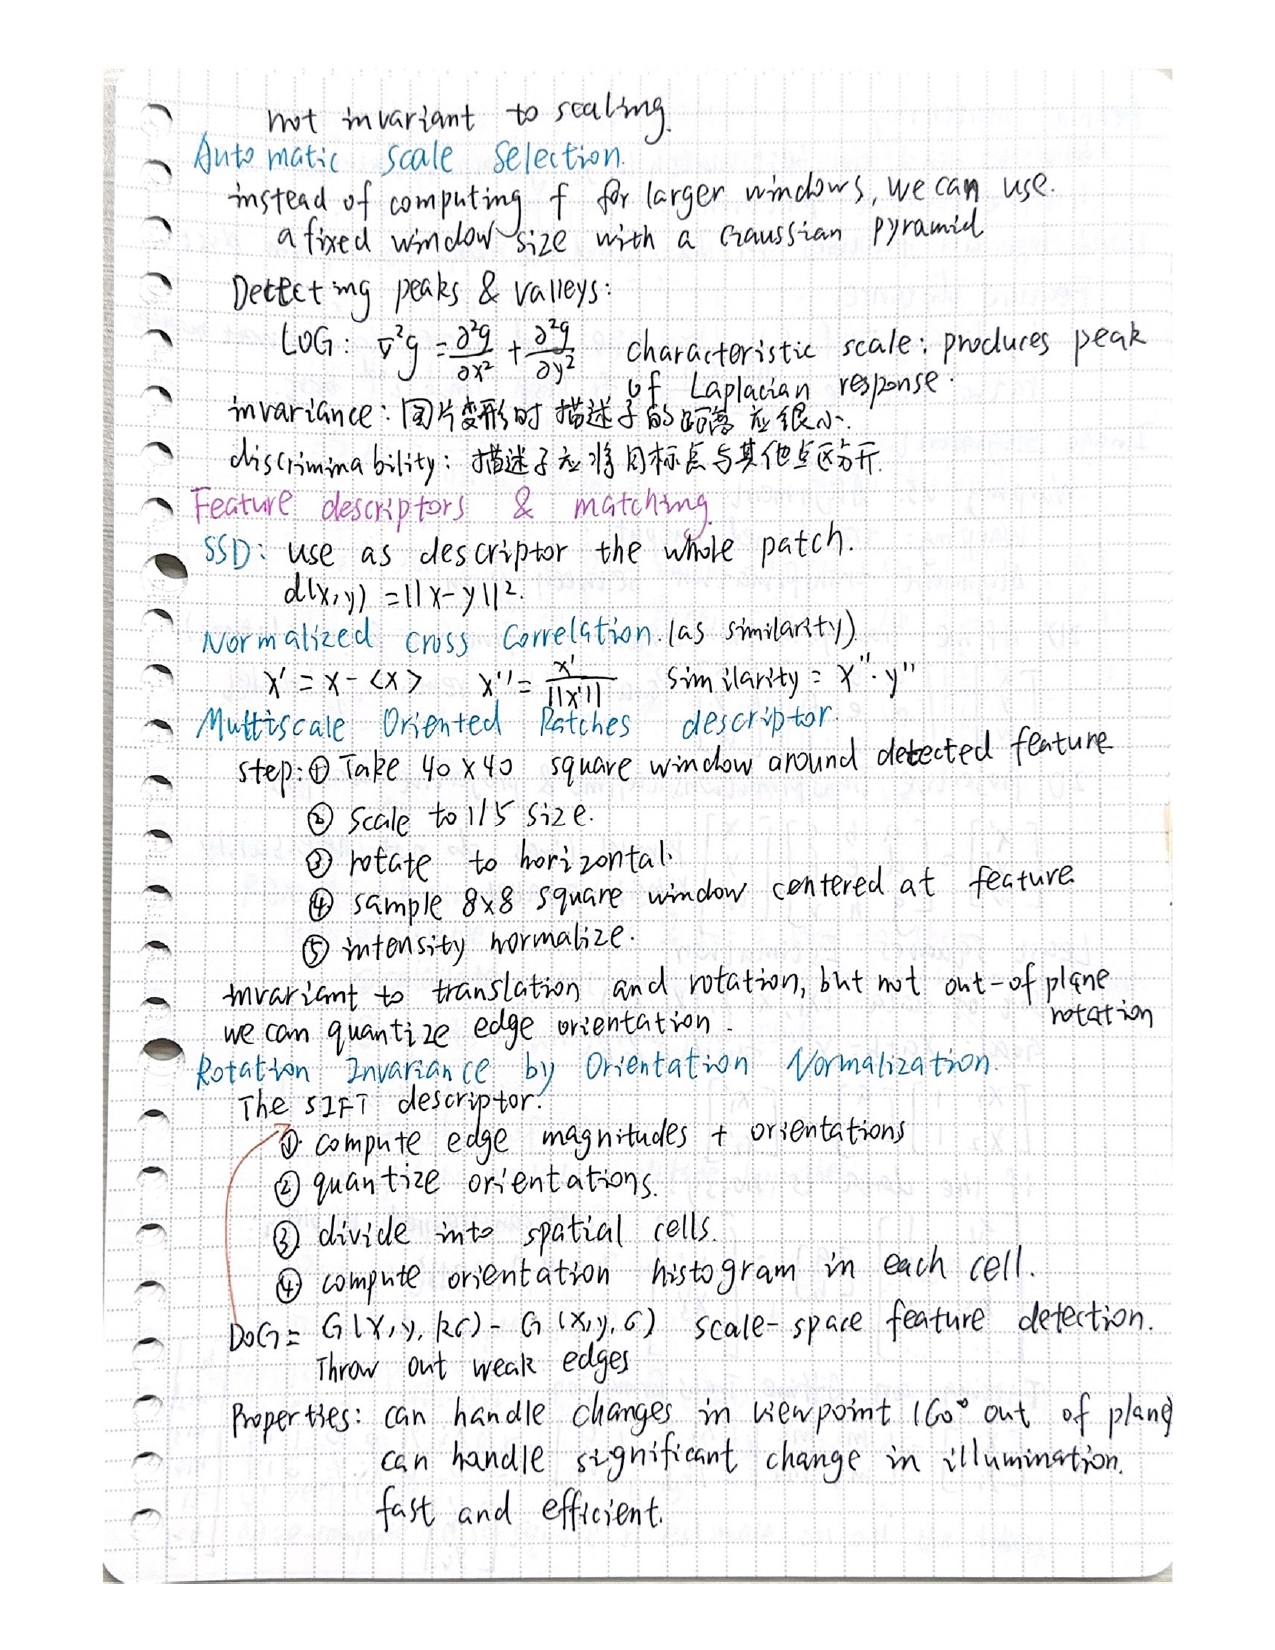 not invariant to scaling.
Automatic scale selection.
instead of computing f for larger windows, we can use.
a fixed window size with a Gaussian pyramid
Detecting peaks & valleys:
LOG: ∇²g = ∂²g/∂x² + ∂²g/∂y² characteristic scale: produces peak
of Laplacian response.
invariance: 图片变形时描述子的距离应很小.
discriminability: 描述子应将目标点与其他点区分开.
Feature descriptors & matching.
SSD: use as descriptor the whole patch.
d(x,y) = ||x-y||².
Normalized cross correlation. (as similarity)
x' = x - <x> x'' = x'/||x'|| similarity = x''·y''
Multiscale Oriented Patches descriptor.
step: ① Take 40x40 square window around detected feature
② scale to 1/5 size.
③ rotate to horizontal.
④ sample 8x8 square window centered at feature
⑤ intensity normalize.
invariant to translation and rotation, but not out-of plane
rotation
we can quantize edge orientation.
Rotation Invariance by Orientation Normalization.
The SIFT descriptor:
① compute edge magnitudes + orientations
② quantize orientations.
③ divide into spatial cells.
④ compute orientation histogram in each cell.
DoG = G(x,y,kσ) - G(x,y,σ) scale-space feature detection.
Throw out weak edges
Properties: can handle changes in viewpoint (60° out of plane)
can handle significant change in illumination.
fast and efficient.